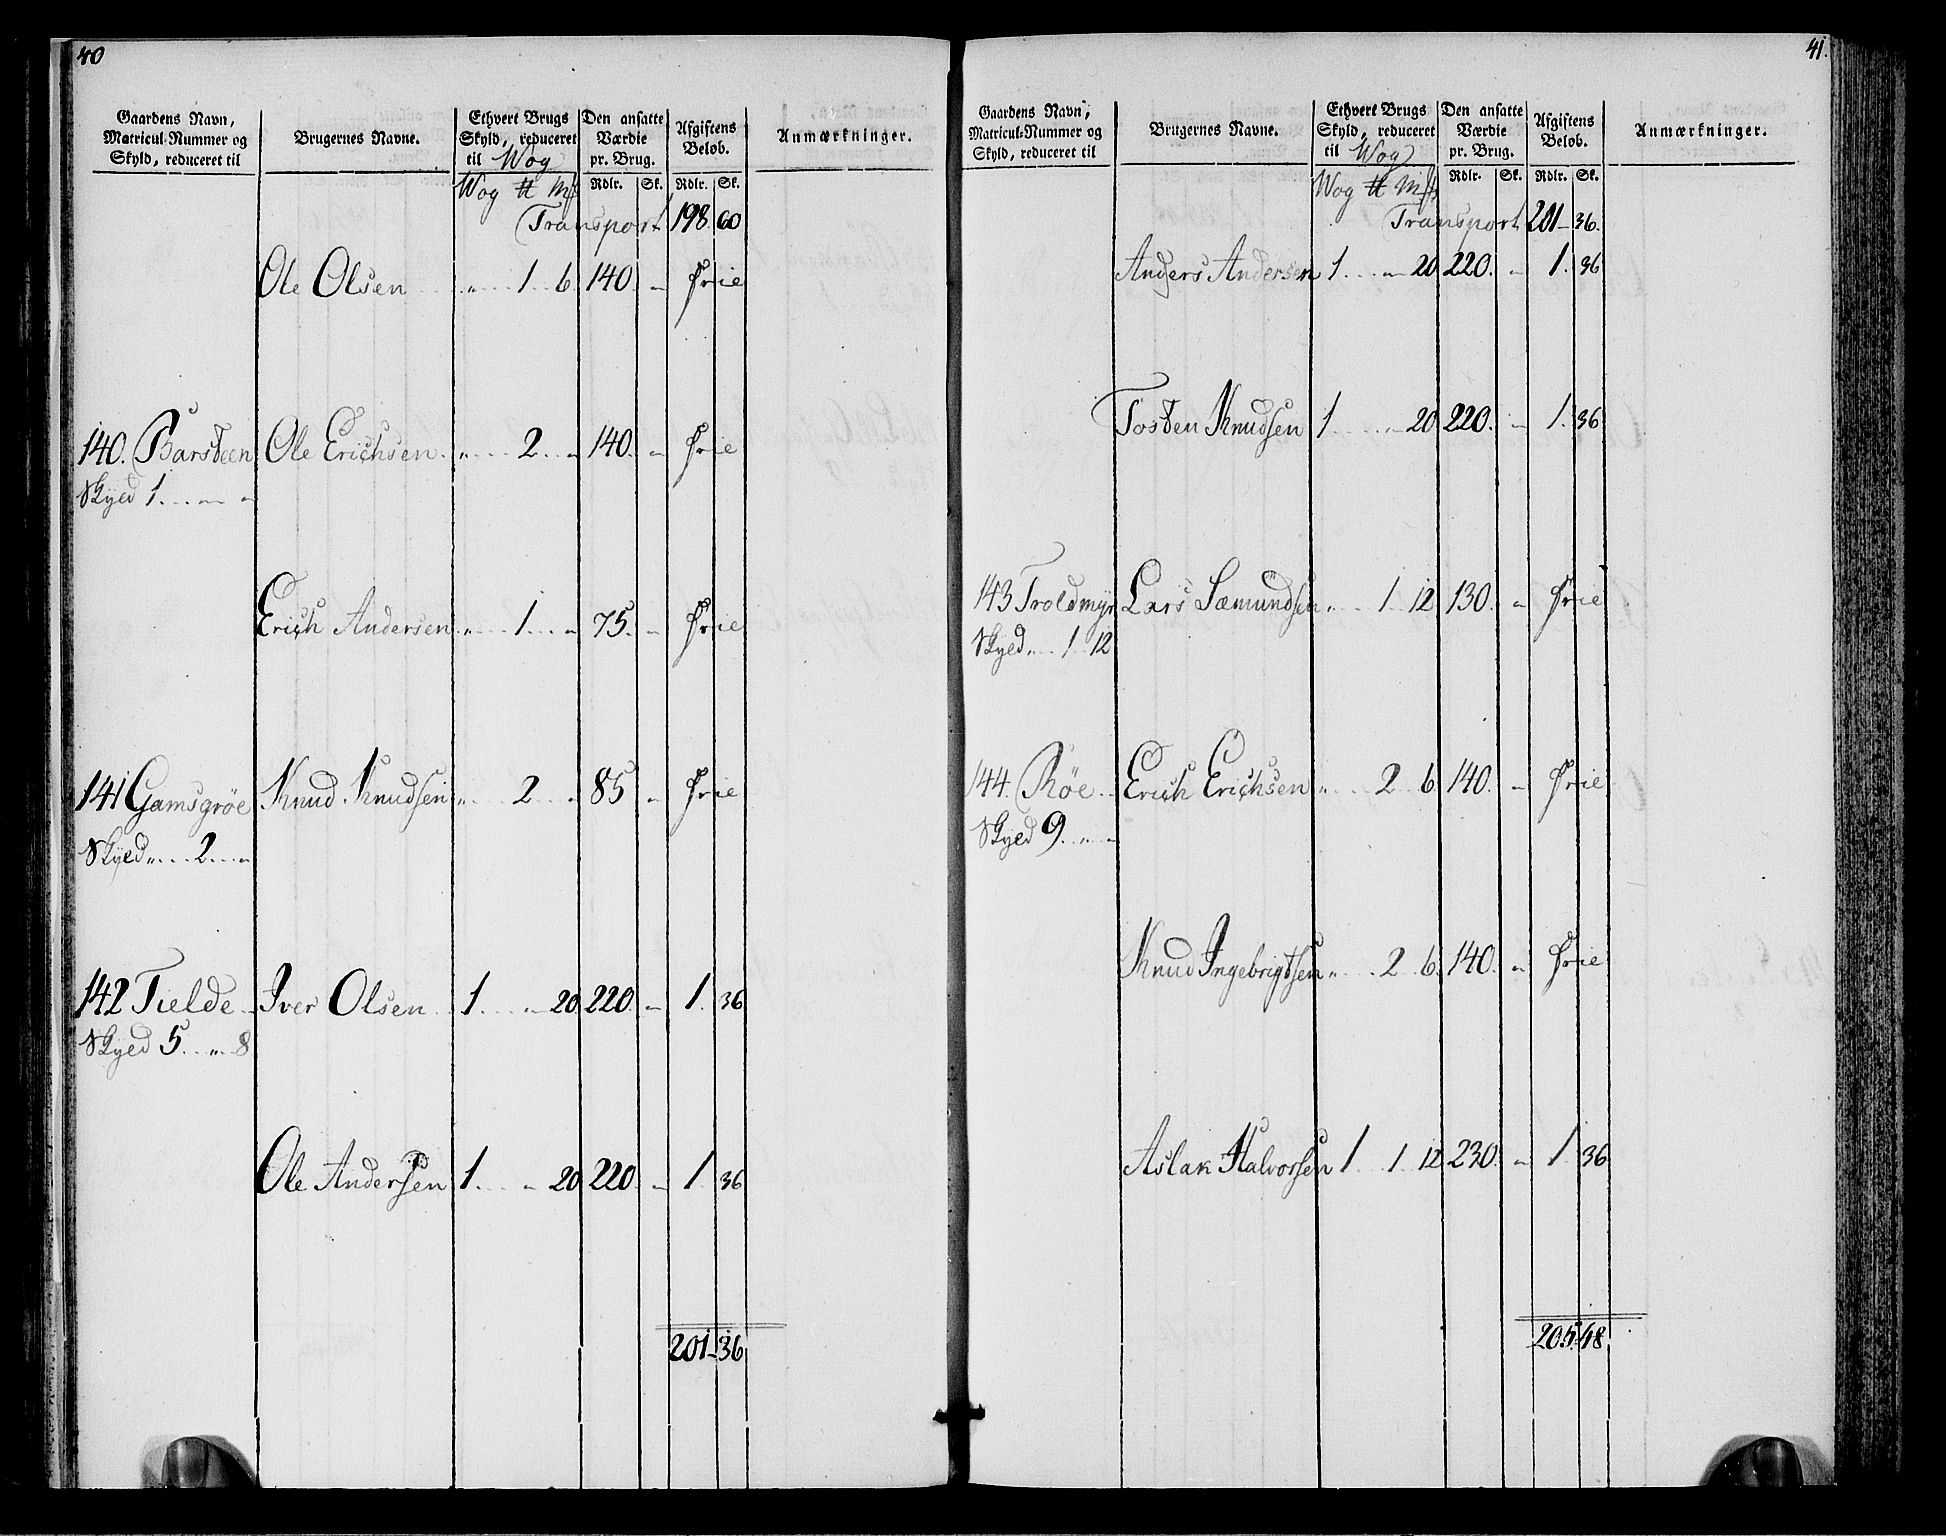 40
Gaardens Navn, Matricul-Nummer og Skyld, reduceret til | Brugernes Navne. | Ethvert Brugs Skyld, reduceret til Wog | Den ansatte Værdie pr. Brug. | Afgiftens Beløb. | Anmærkninger.
Wog ℔ Mk | Rdlr. | Sk. | Rdlr. | Sk.
Transport 198. 60
Ole Olsen „ 1 6 140. „ Frie
140. Barsteen Ole Erichsen „ 2 „ 140. „ Frie
Skyld 1 „ „
Erich Andersen „ 1 „ 75. „ Frie
141 Gamsgrøe Knud Knudsen „ 2 „ 85 „ Frie
Skyld „ 2 „
142 Tielde Iver Olsen 1 „ 20 220. „ 1. 36
Skyld 5 „ 8
Ole Andersen 1 „ 20 220. „ 1. 36
201 36
41.
Gaardens Navn, Matricul-Nummer og Skyld, reduceret til | Brugernes Navne. | Ethvert Brugs Skyld, reduceret til Wog | Den ansatte Værdie pr. Brug. | Afgiftens Beløb. | Anmærkninger.
Wog ℔ Mk | Rdlr. | Sk. | Rdlr. | Sk.
Transport 201 36.
Anders Andersen 1 „ 20 220. „ 1. 36
Tosten Knudsen 1 „ 20 220. „ 1. 36
143 Troldmyr Lars Sæmundsen „ 1 12 130. „ Frie
Skyld „ 1 12
144. Røe Erich Erichsen „ 2 6 140. „ Frie
Skyld 9. „ „
Knud Ingebrigtsen „ 2 6 140. „ Frie
Aslak Halvorsen 1 1 12 230. „ 1 36
205. 48